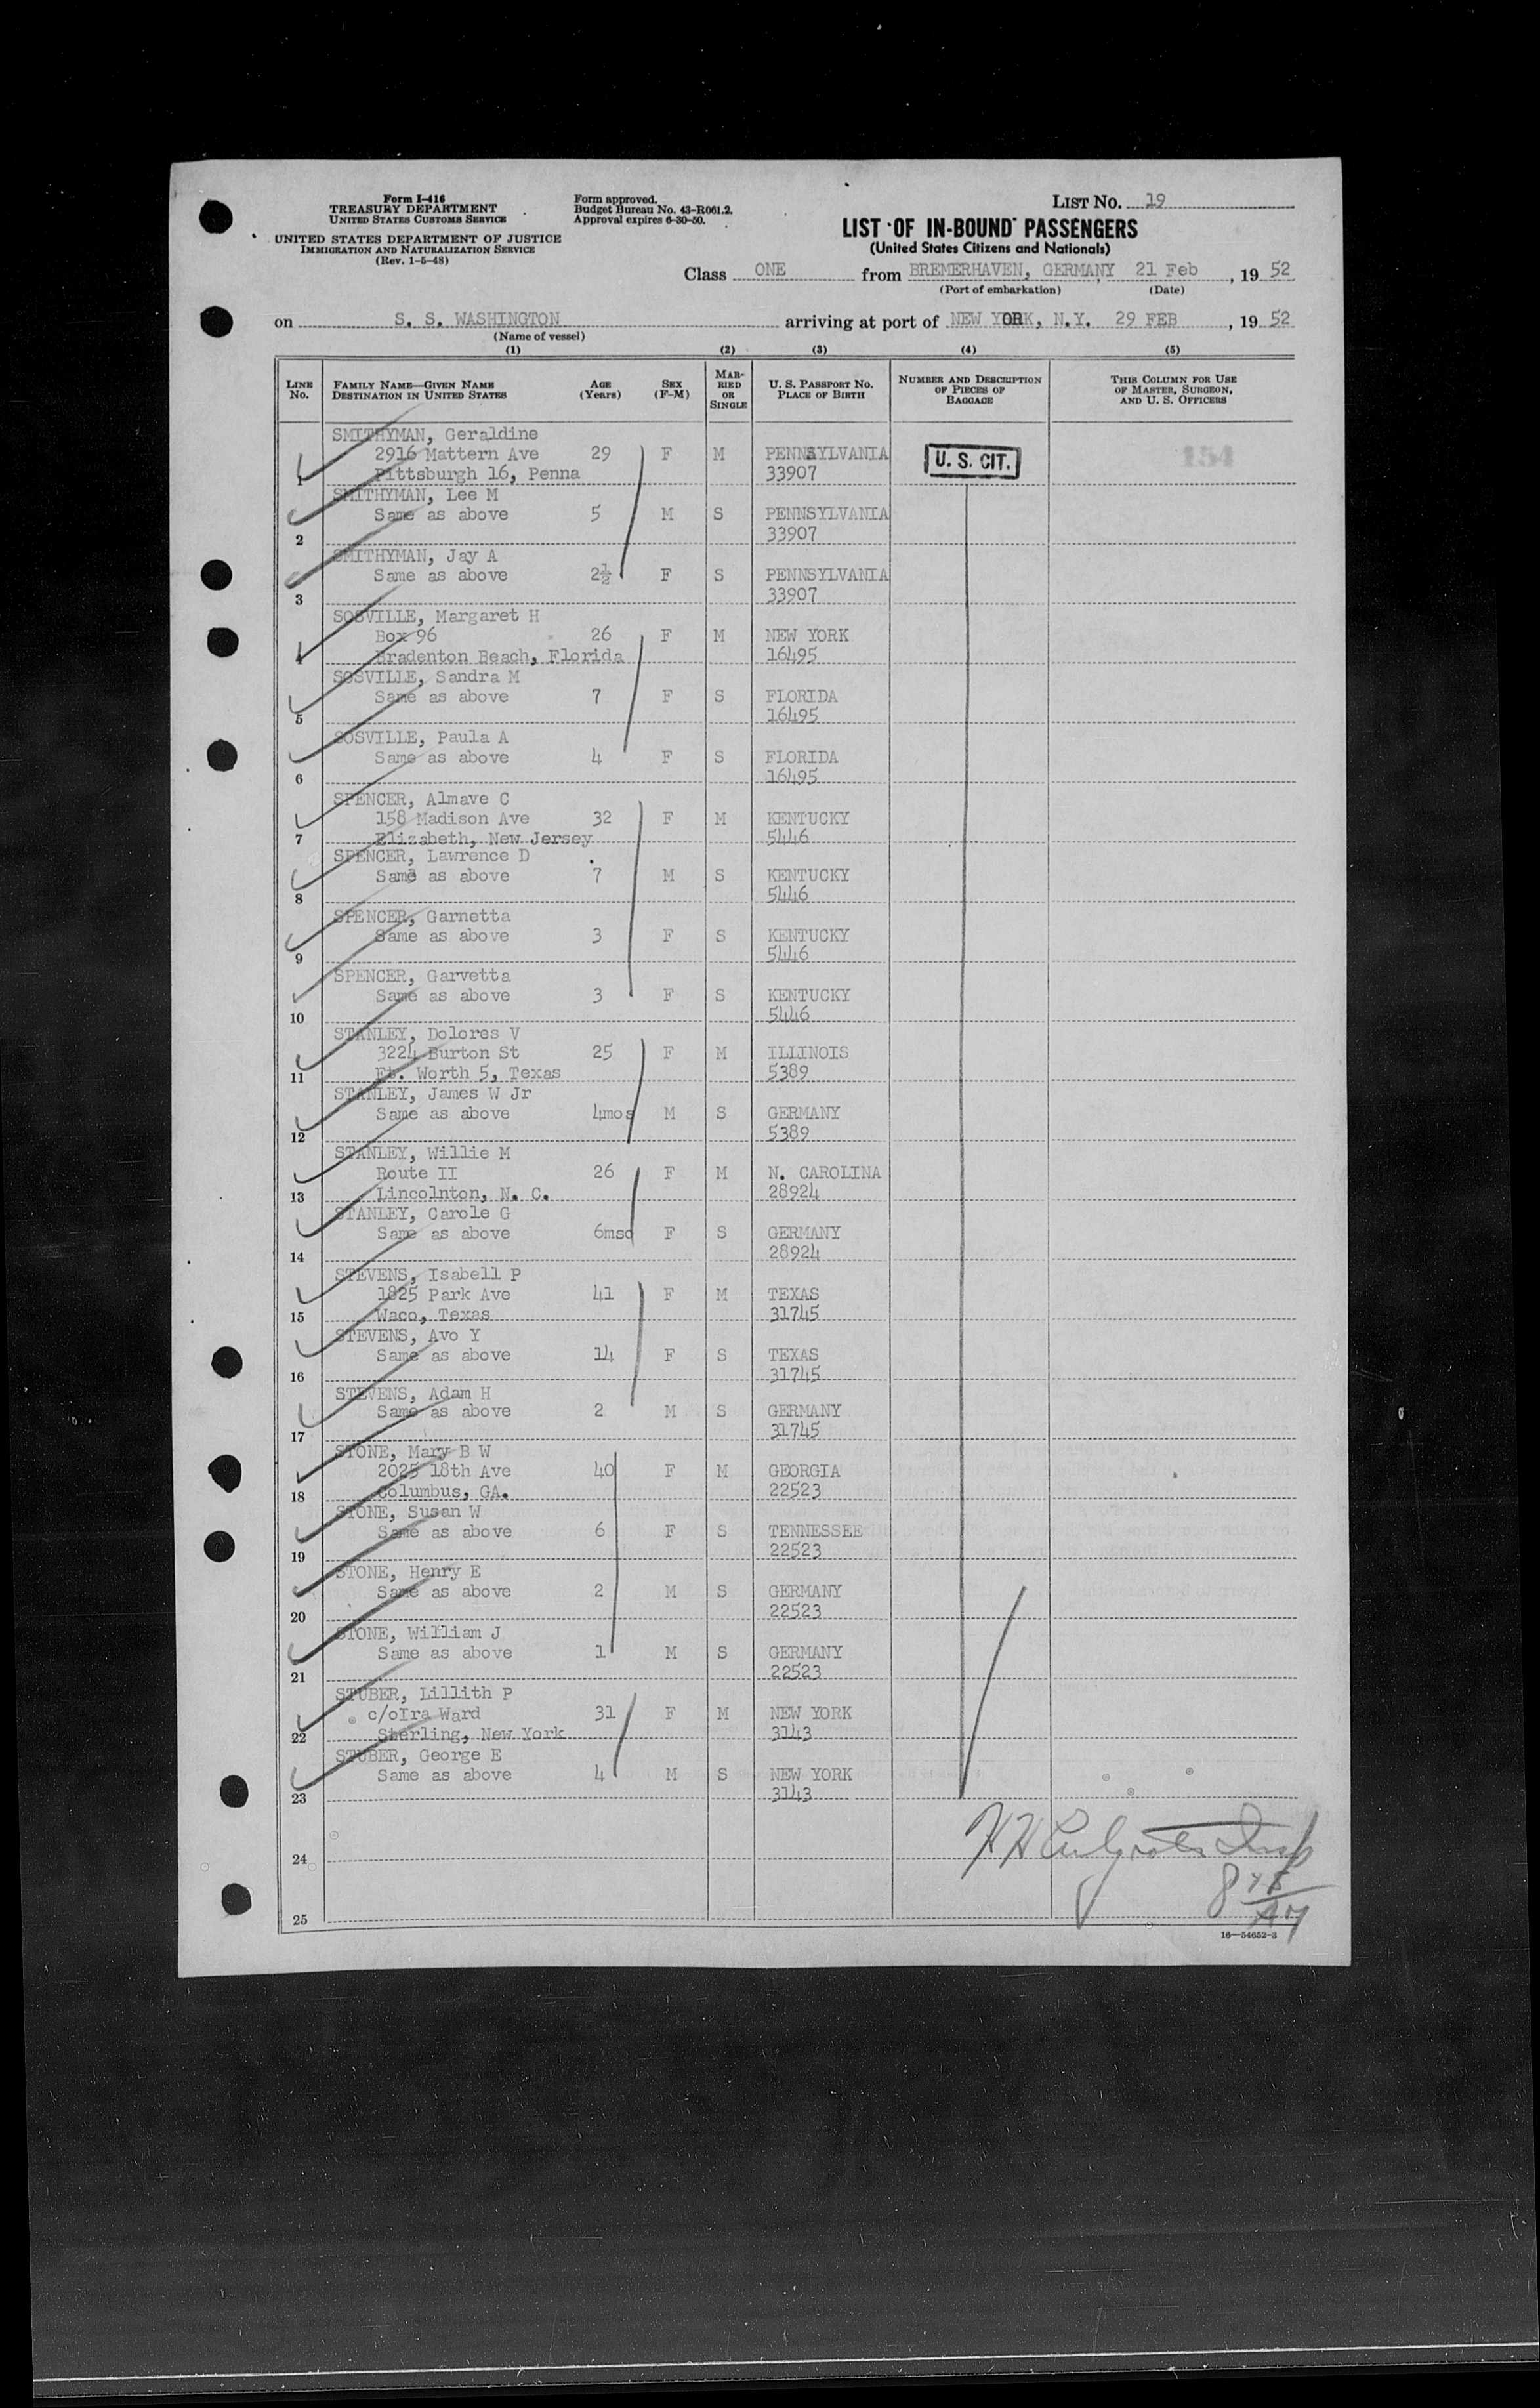 Form I-416
TREASURY DEPARTMENT
UNITED STATES CUSTOMS SERVICE
UNITED STATES DEPARTMENT OF JUSTICE
IMMIGRATION AND NATURALIZATION SERVICE
(Rev. 1-5-48)
Form approved.
Budget Bureau No. 43-R061.2.
Approval expires 6-30-50.
LIST NO. 19
LIST OF IN-BOUND PASSENGERS
(United States Citizens and Nationals)
Class ONE from BREMERHAVEN, GERMANY, 21 Feb, 19 52
(Port of embarkation) (Date)
on S. S. WASHINGTON arriving at port of NEW YORK, N.Y. 29 FEB, 19 52
(Name of vessel)
(1) (2) (3) (4) (5)
LINE NO. FAMILY NAME—GIVEN NAME DESTINATION IN UNITED STATES AGE (Years) SEX (F-M) MARRIED OR SINGLE U. S. PASSPORT NO. PLACE OF BIRTH NUMBER AND DESCRIPTION OF PIECES OF BAGGAGE THIS COLUMN FOR USE OF MASTER, SURGEON, AND U. S. OFFICERS
SMITHYMAN, Geraldine
2916 Mattern Ave 29 F M PENNSYLVANIA U. S. CIT. 154
1 Pittsburgh 16, Penna 33907
SMITHYMAN, Lee M
Same as above 5 M S PENNSYLVANIA
2 33907
SMITHYMAN, Jay A
Same as above 2½ F S PENNSYLVANIA
3 33907
SOSVILLE, Margaret H
Box 96 26 F M NEW YORK
4 Bradenton Beach, Florida 16495
SOSVILLE, Sandra M
Same as above 7 F S FLORIDA
5 16495
SOSVILLE, Paula A
Same as above 4 F S FLORIDA
6 16495
SPENCER, Almave C
158 Madison Ave 32 F M KENTUCKY
7 Elizabeth, New Jersey 5446
SPENCER, Lawrence D
Same as above 7 M S KENTUCKY
8 5446
SPENCER, Garnetta
Same as above 3 F S KENTUCKY
9 5446
SPENCER, Garvetta
Same as above 3 F S KENTUCKY
10 5446
STANLEY, Dolores V
3224 Burton St 25 F M ILLINOIS
11 Ft. Worth 5, Texas 5389
STANLEY, James W Jr
Same as above 4mos M S GERMANY
12 5389
STANLEY, Willie M
Route II 26 F M N. CAROLINA
13 Lincolnton, N. C. 28924
STANLEY, Carole G
Same as above 6mso F S GERMANY
14 28924
STEVENS, Isabell P
1825 Park Ave 41 F M TEXAS
15 Waco, Texas 31745
STEVENS, Avo Y
Same as above 14 F S TEXAS
16 31745
STEVENS, Adam H
Same as above 2 M S GERMANY
17 31745
STONE, Mary B W
2025 18th Ave 40 F M GEORGIA
18 Columbus, GA. 22523
STONE, Susan W
Same as above 6 F S TENNESSEE
19 22523
STONE, Henry E
Same as above 2 M S GERMANY
20 22523
STONE, William J
Same as above 1 M S GERMANY
21 22523
STUBER, Lillith P
c/oIra Ward 31 F M NEW YORK
22 Sterling, New York 3143
STUBER, George E
Same as above 4 M S NEW YORK
23 3143
24
8 45 AM
25
16—54652-3